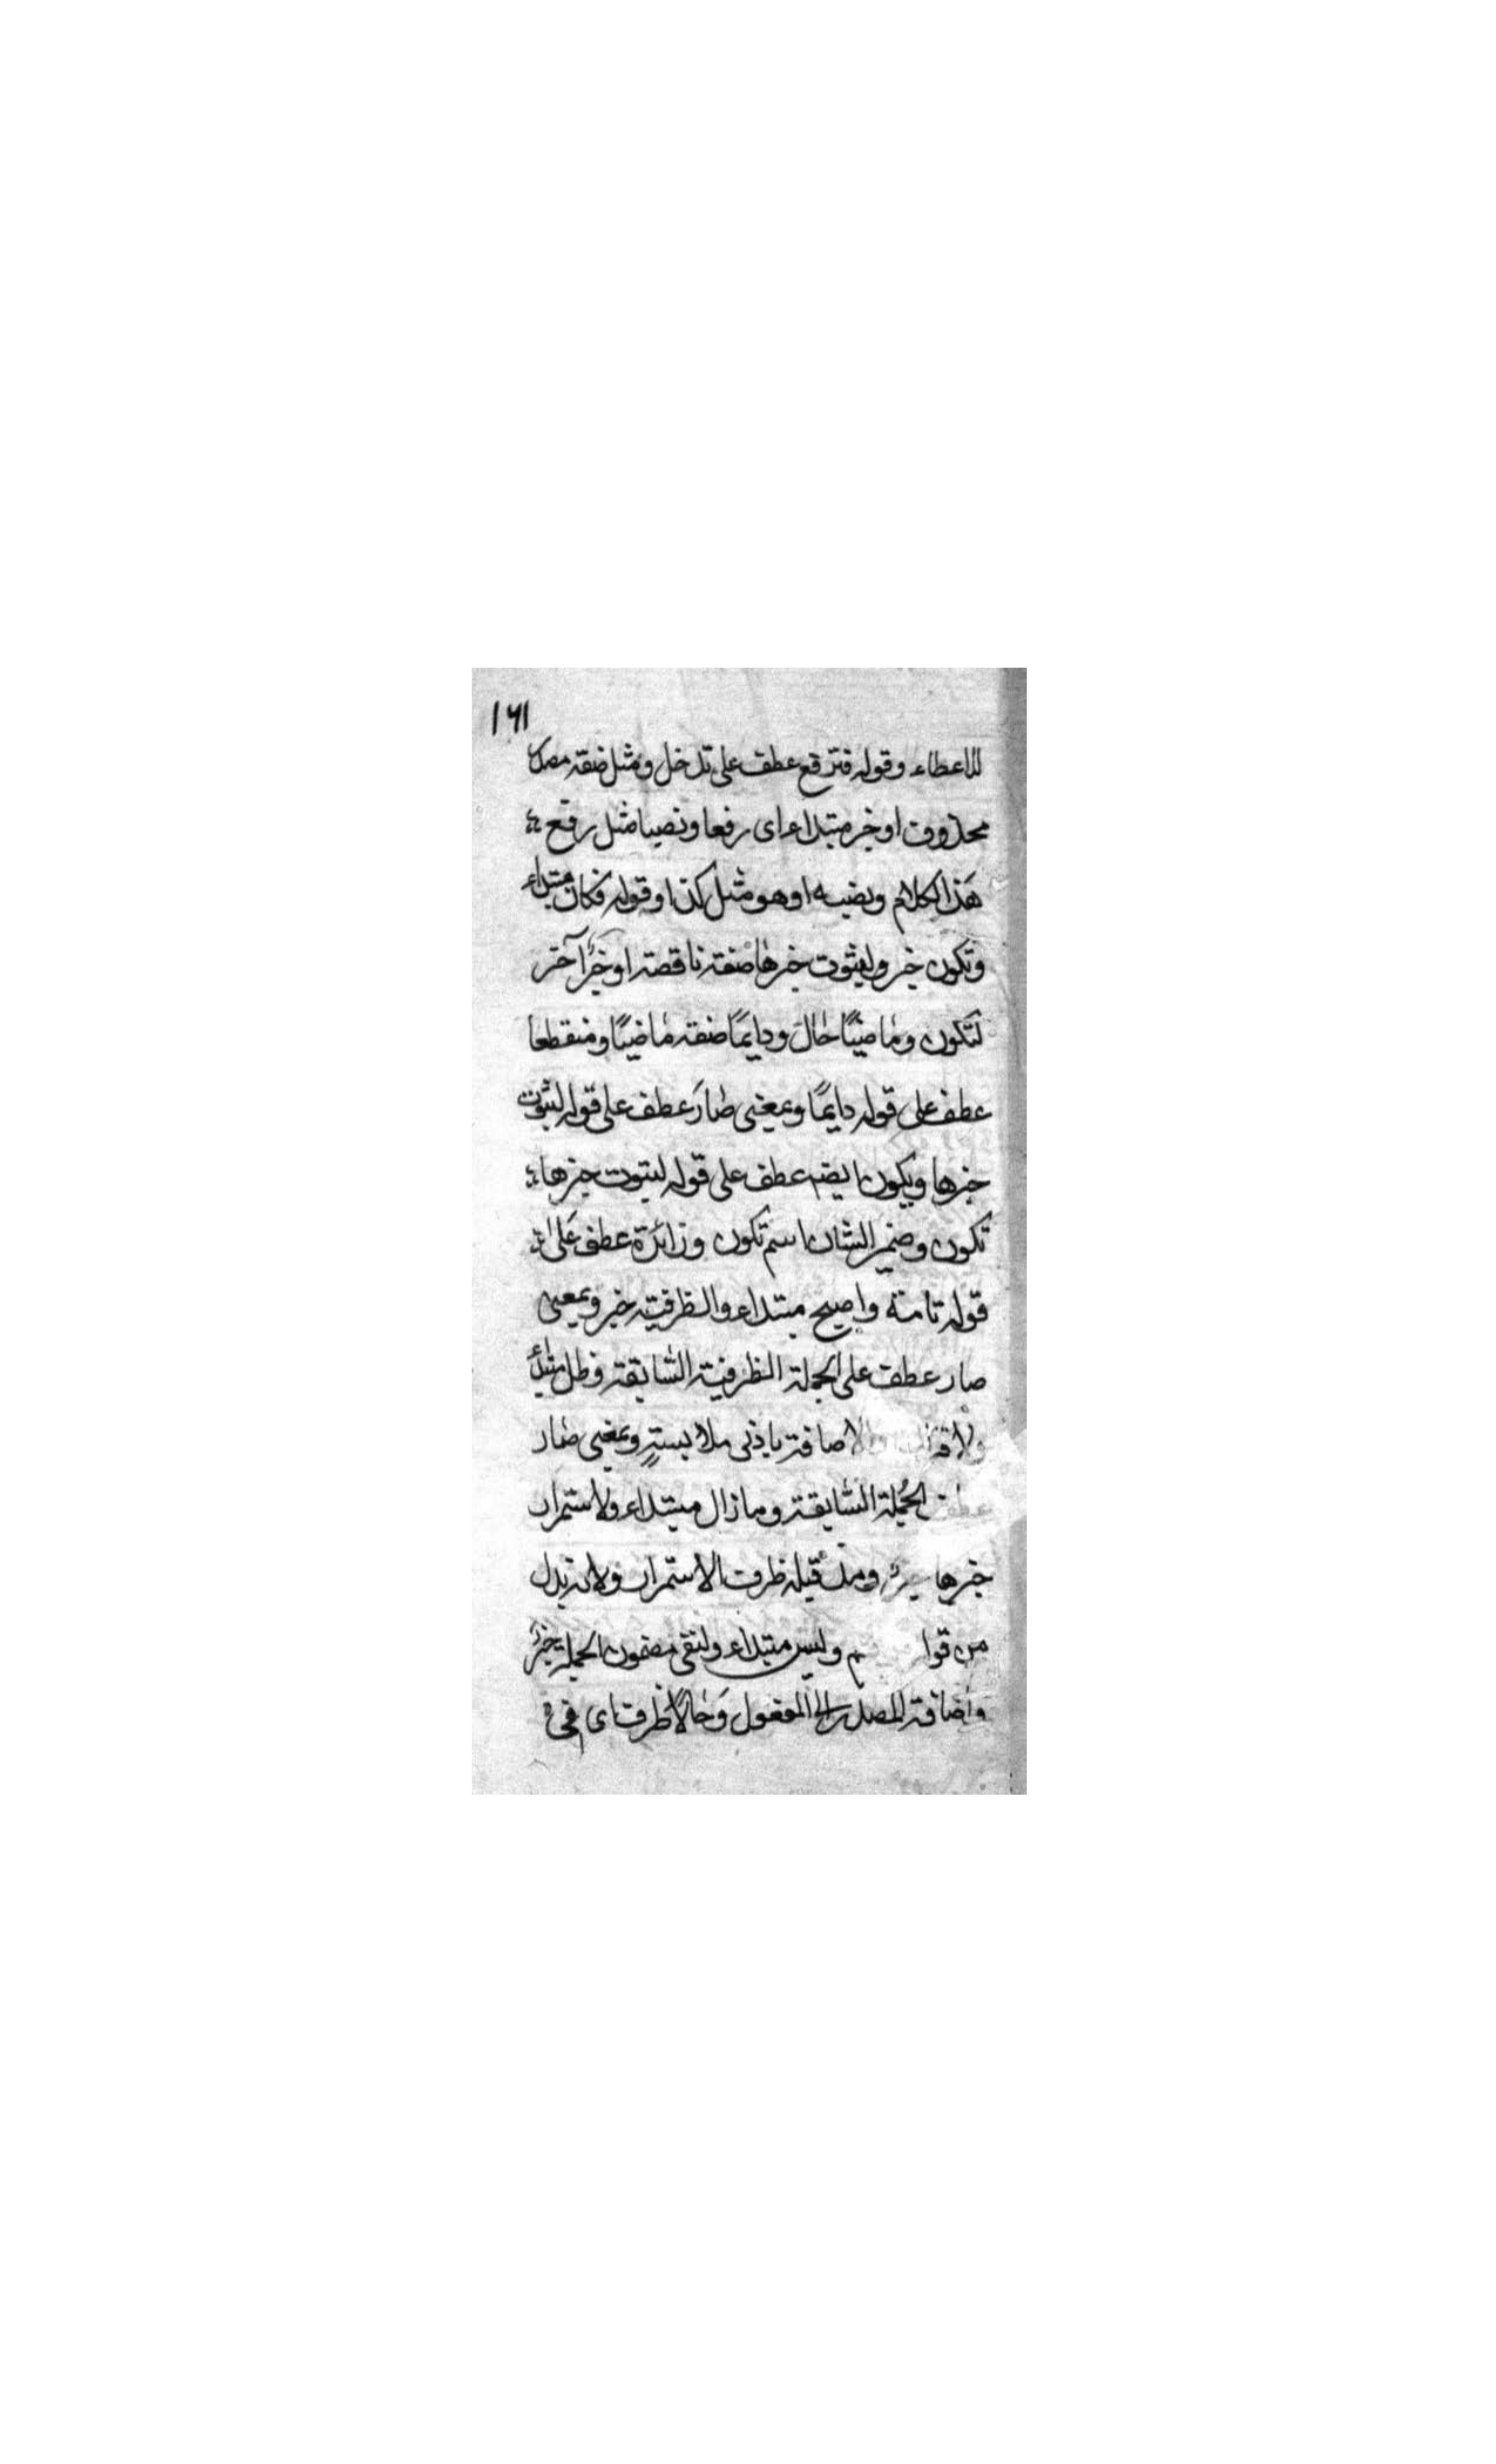 ١٦١
للاعطاء وقوله فترفع عطف على تدخل ومثل صفة مصدر
محذوف او خبر مبتداء اى رفعا ونصبا مثل رفع
هذا الكلام ونصبه او هو مثل كذا وقوله فكان مبتداء
وتكون خبر ولثبوت خبرها صفة ناقصة او خبرًا آخر
لتكون وماضيًا حال ودايمًا صفة ماضيًا ومنقطعا
عطف على قوله دايمًا وبمعنى صار عطف على قوله لثبوت
خبرها ويكون ايضم عطف على قوله لثبوت خبرها
تكون وضمير الشان اسم تكون وزائدة عطف على
قوله تامة واصبح مبتداء والظرفية خبر وبمعنى
صار عطف على الجملة الظرفية السابقة وظل مبتدأ
والاضافة بادنى ملابسةٍ وبمعنى صار
عطف الجُملة السابقة وما زال مبتداء ولاستمرار
خبرها ومذ قبله ظرف الاستمرار ولا تريدل
من قوا وليس مبتداء ولنفى مضمون الجملة خبر
واضافة المصدر الى المفعول وحالاً ظرف اى فى